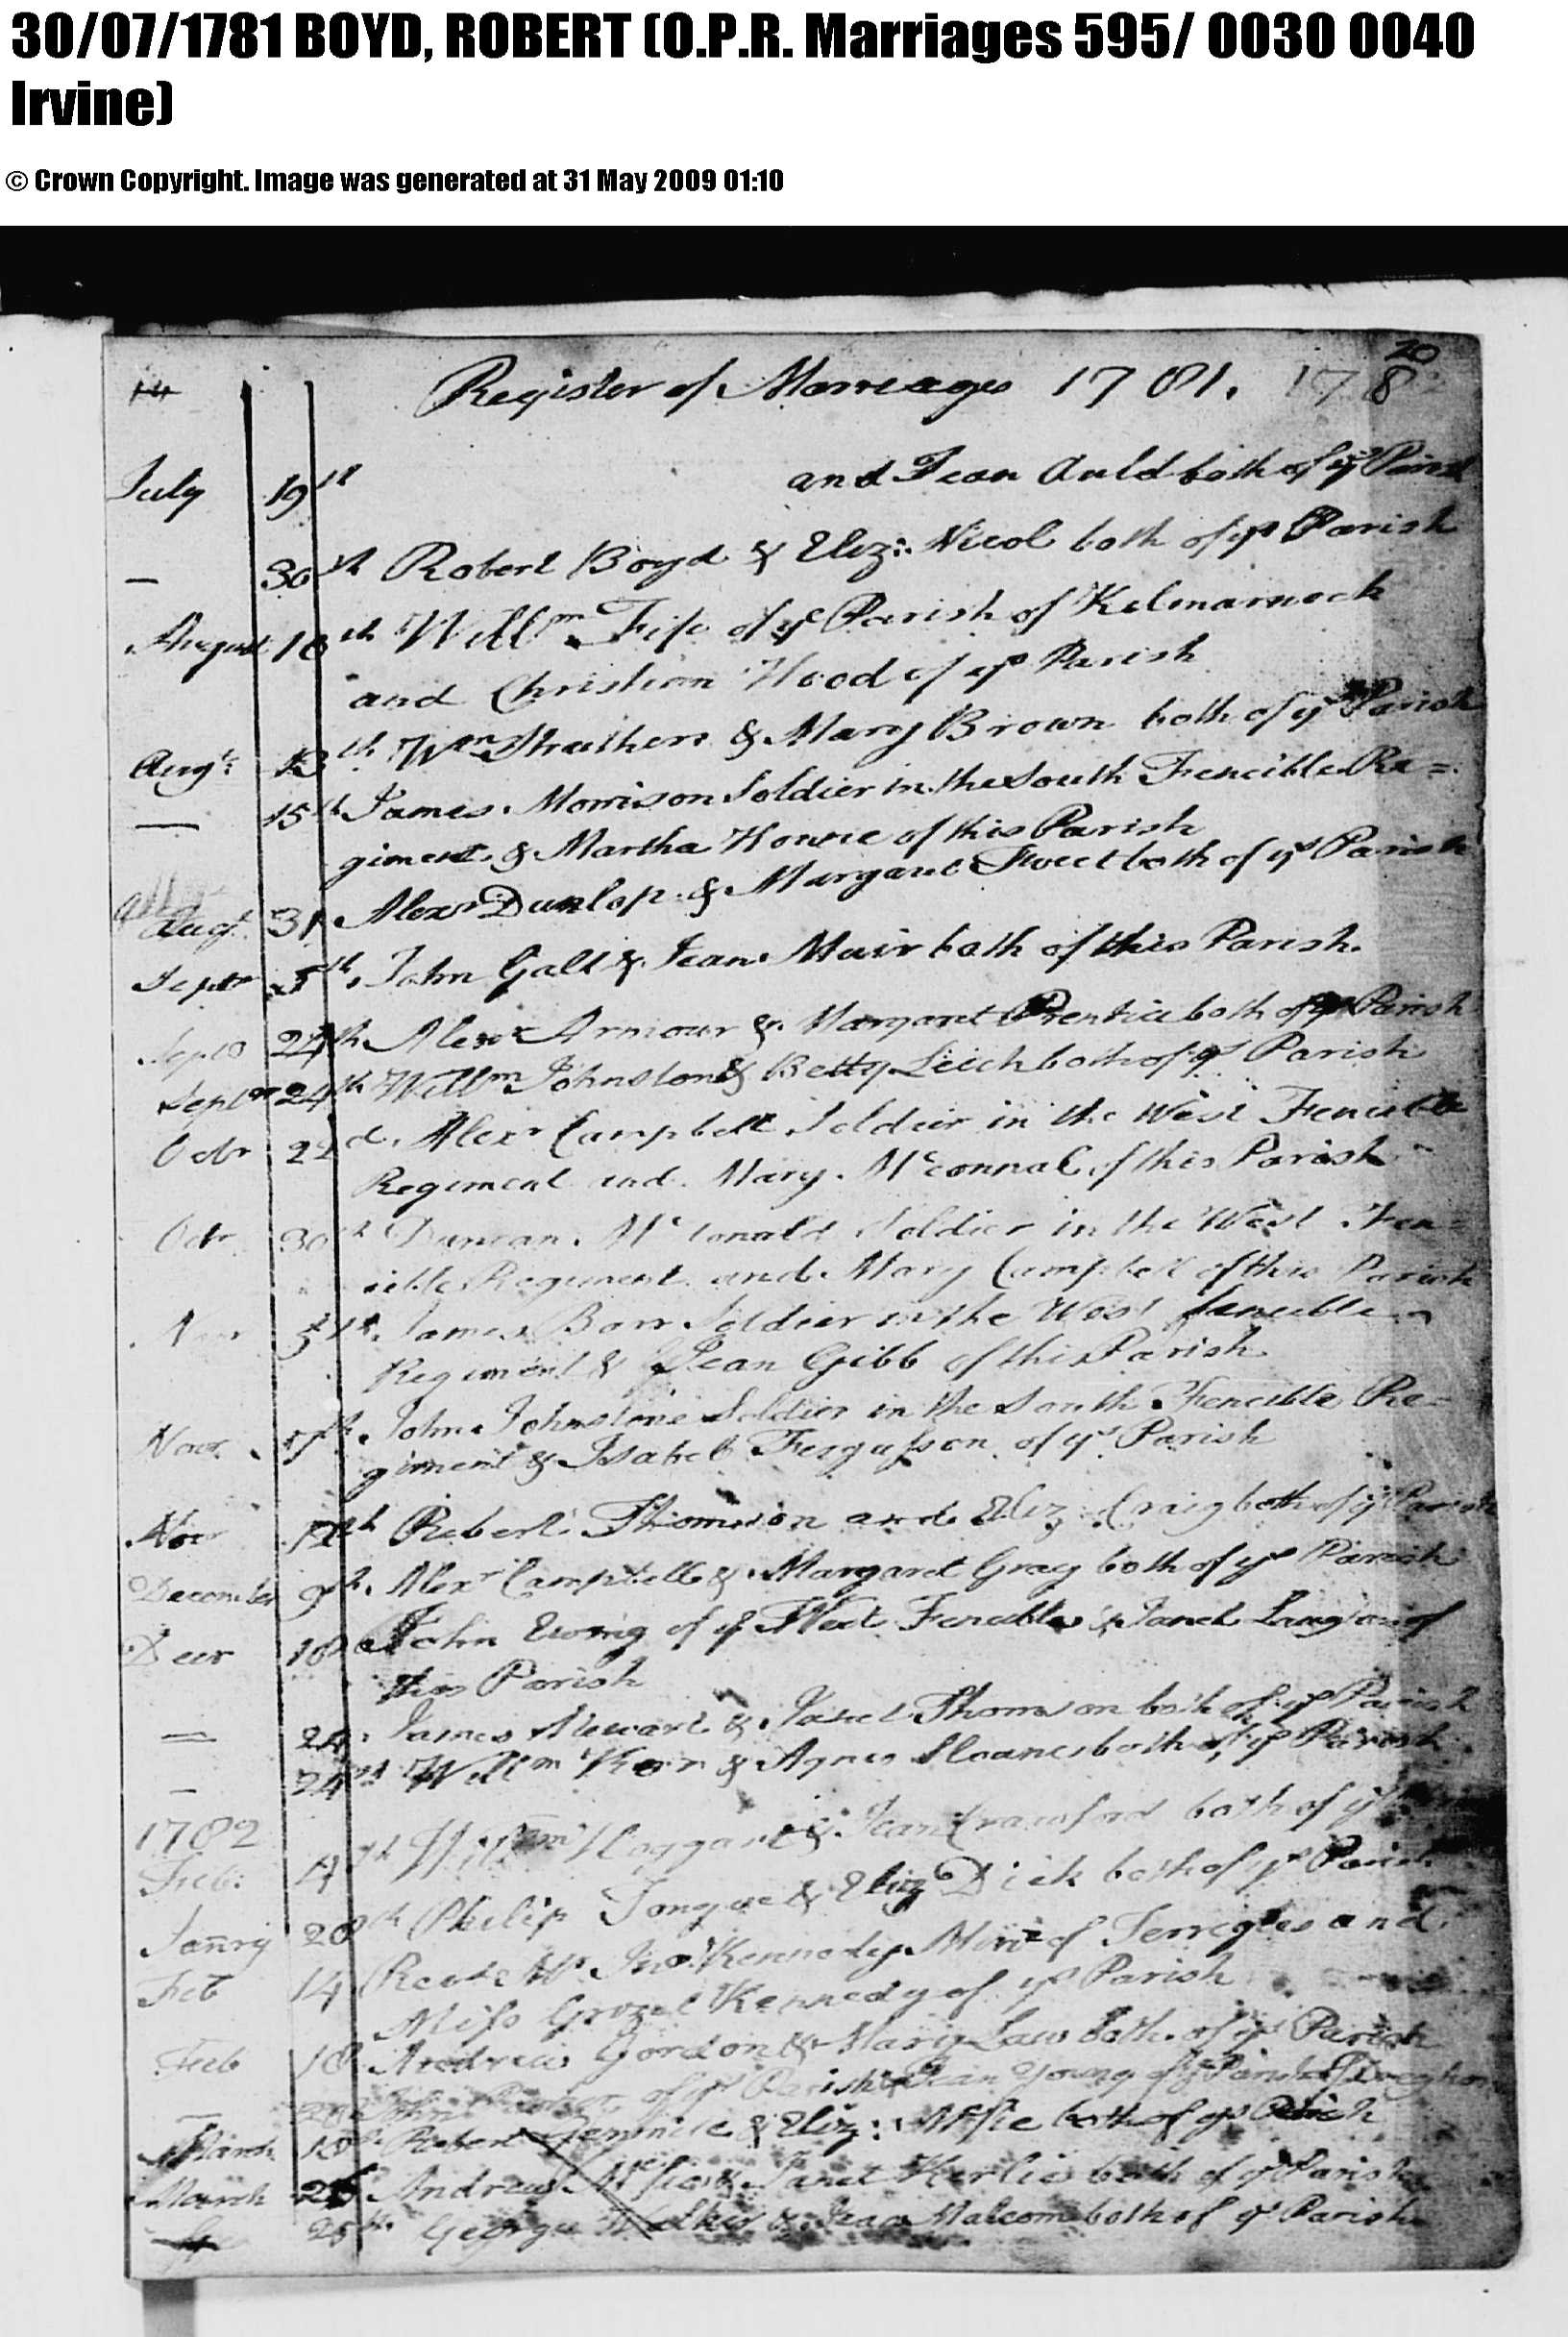 30/07/1781 BOYD, ROBERT (O.P.R. Marriages 595/ 0030 0040
Irvine)
© Crown Copyright. Image was generated at 31 May 2009 01:10
20
14 Register of Marreages 1781. 178
July 19th and Jean Auld both of ys Parish
— 30th Robert Boyd & Eliz: Nicol both of ys Parish
August 10th Willm Fife of ye Parish of Kelmarnock
and Christian Wood of ys Parish
Augt: 13th Wm Struthers & Mary Brown both of ys Parish
— 15th James Morrison Soldier in the South Fencible Re=
giment & Martha Howie of this Parish
Augt 31 Alexr Dunlop & Margaret Sweet both of ys Parish
Septr 5th John Galt & Jean Muir both of this Parish.
Septr 24th Alexr Armour & Margaret Prentice both of ys Parish
Septr 24th Willm Johnston & Betty Leich both of ys Parish
Octr 22d Alexr Campbell Soldier in the West Fencible
Regiment and Mary McConnal of this Parish
Octr 30th Duncan Mcdonald Soldier in the West Fen=
cible Regiment and Mary Campbell of this Parish
Novr 5th James Barr Soldier in the West fencible
Regiment & Jean Gibb of this Parish
Novr John Johnstone Soldier in the South Fencible Re=
giment & Isabel Fergusson of ys Parish
Novr 12th Robert Thomson and Eliz: Craig both of ys Parish
December 9th Alexr Campbell & Margaret Gray both of ys Parish
Decr 10 John Ewing of ye West Fencibles & Janet Lang of
this Parish
— 24 James Stewart & Janet Thomson both of ys Parish
— 24th Willm Kerr & Agnes Sloane both of ys Parish
1782
Feb: 4th Willm Haggart & Jean Crawford both of ys
Janry 28th Philip Tongue & Eliz Dick both of ys Parish
Feb 14 Revd Mr Jno Kennedy Minr of Terregles and
Miss Grizel Kennedy of ys Parish
Feb 18 Andrew Gordon & Mary Law both of ys Parish
— John of ys Parish & Jean Young of ye Parish of Dreghorn
March 18 Robert & Eliz: both of ys Parish
March 25 Andrew & Janet Kerlie both of ys Parish
25th George Walker & Jean Malcom both of ys Parish